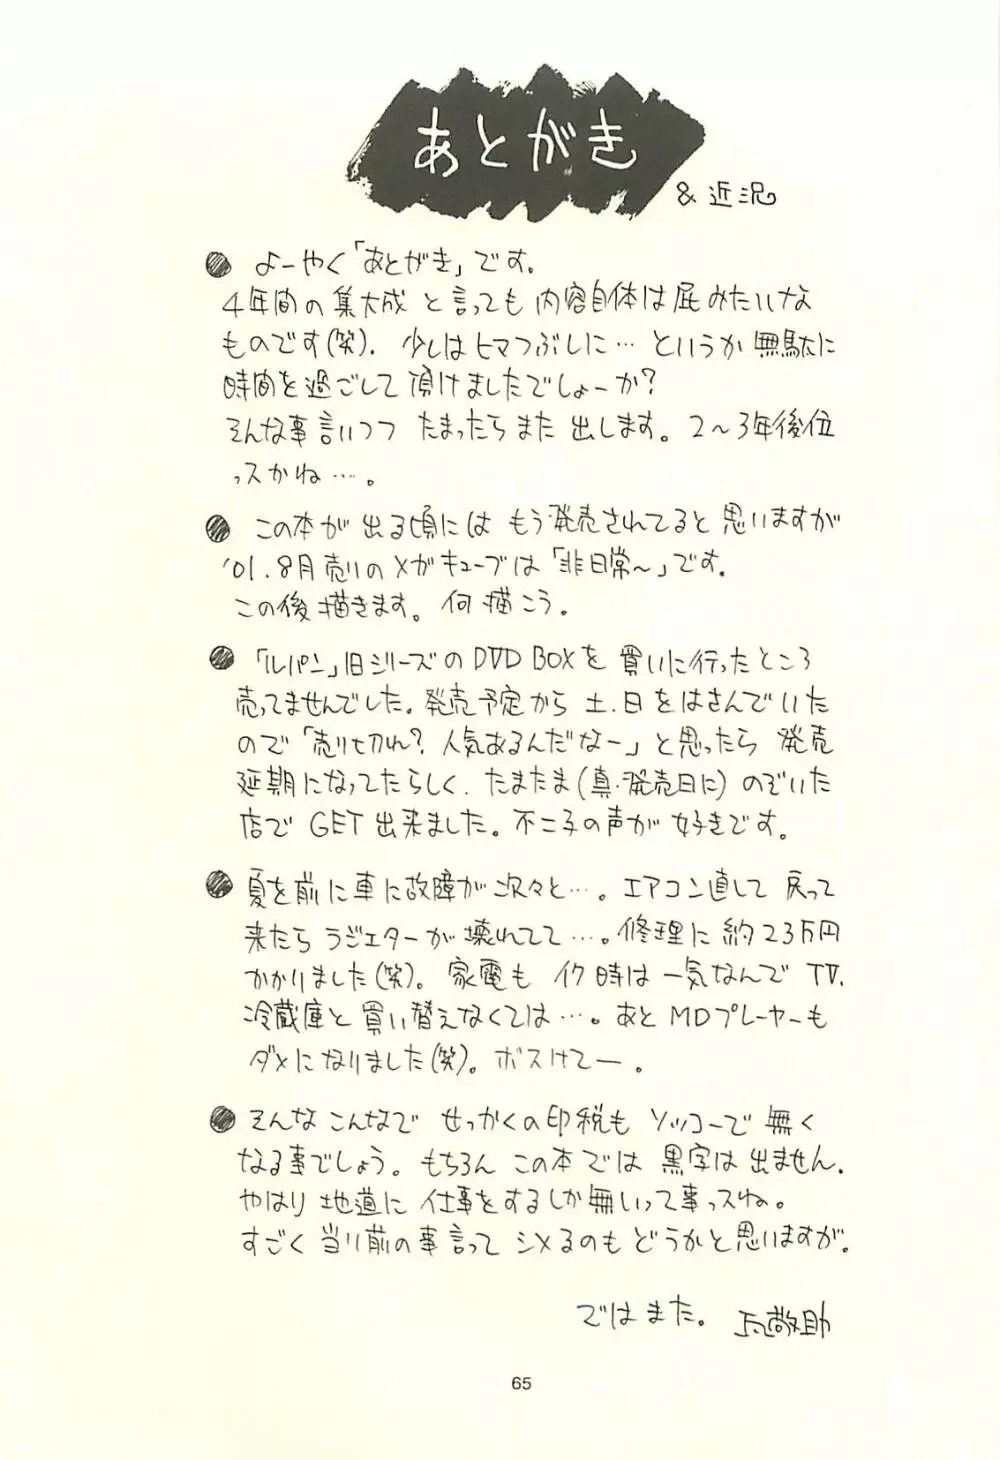 あとがき
&近況
● よーやく「あとがき」です。
4年間の集大成と言っても内容自体は屁みたいな
ものです(笑)。少しはヒマつぶしに…というか無駄に
時間を過ごして頂けましたでしょーか?
そんな事言いつつ たまったらまた出します。2〜3年後位
っスかね…。
● この本が出る頃にはもう発売されてると思いますが
'01.8月売りのメガキューブは「非日常〜」です。
この後描きます。何描こう。
● 「ルパン」旧シリーズのDVD BOXを買いに行ったところ
売ってませんでした。発売予定から土.日をはさんでいた
ので「売り切れ?人気あるんだなー」と思ったら発売
延期になってたらしく.たまたま(真・発売日に)のぞいた
店でGET出来ました。不二子の声が好きです。
● 夏を前に車に故障が次々と…。エアコン直して戻って
来たらラジエターが壊れてて…。修理に約23万円
かかりました(笑)。家電もイク時は一気なんでTV.
冷蔵庫と買い替えなくては…。あとMDプレーヤーも
ダメになりました(笑)。ボスけてー。
● そんなこんなでせっかくの印税もソッコーで無く
なる事でしょう。もちろんこの本では黒字は出ません.
やはり地道に仕事をするしか無いって事っスね。
すごく当り前の事言ってシメるのもどうかと思いますが。
ではまた。
敬助
65